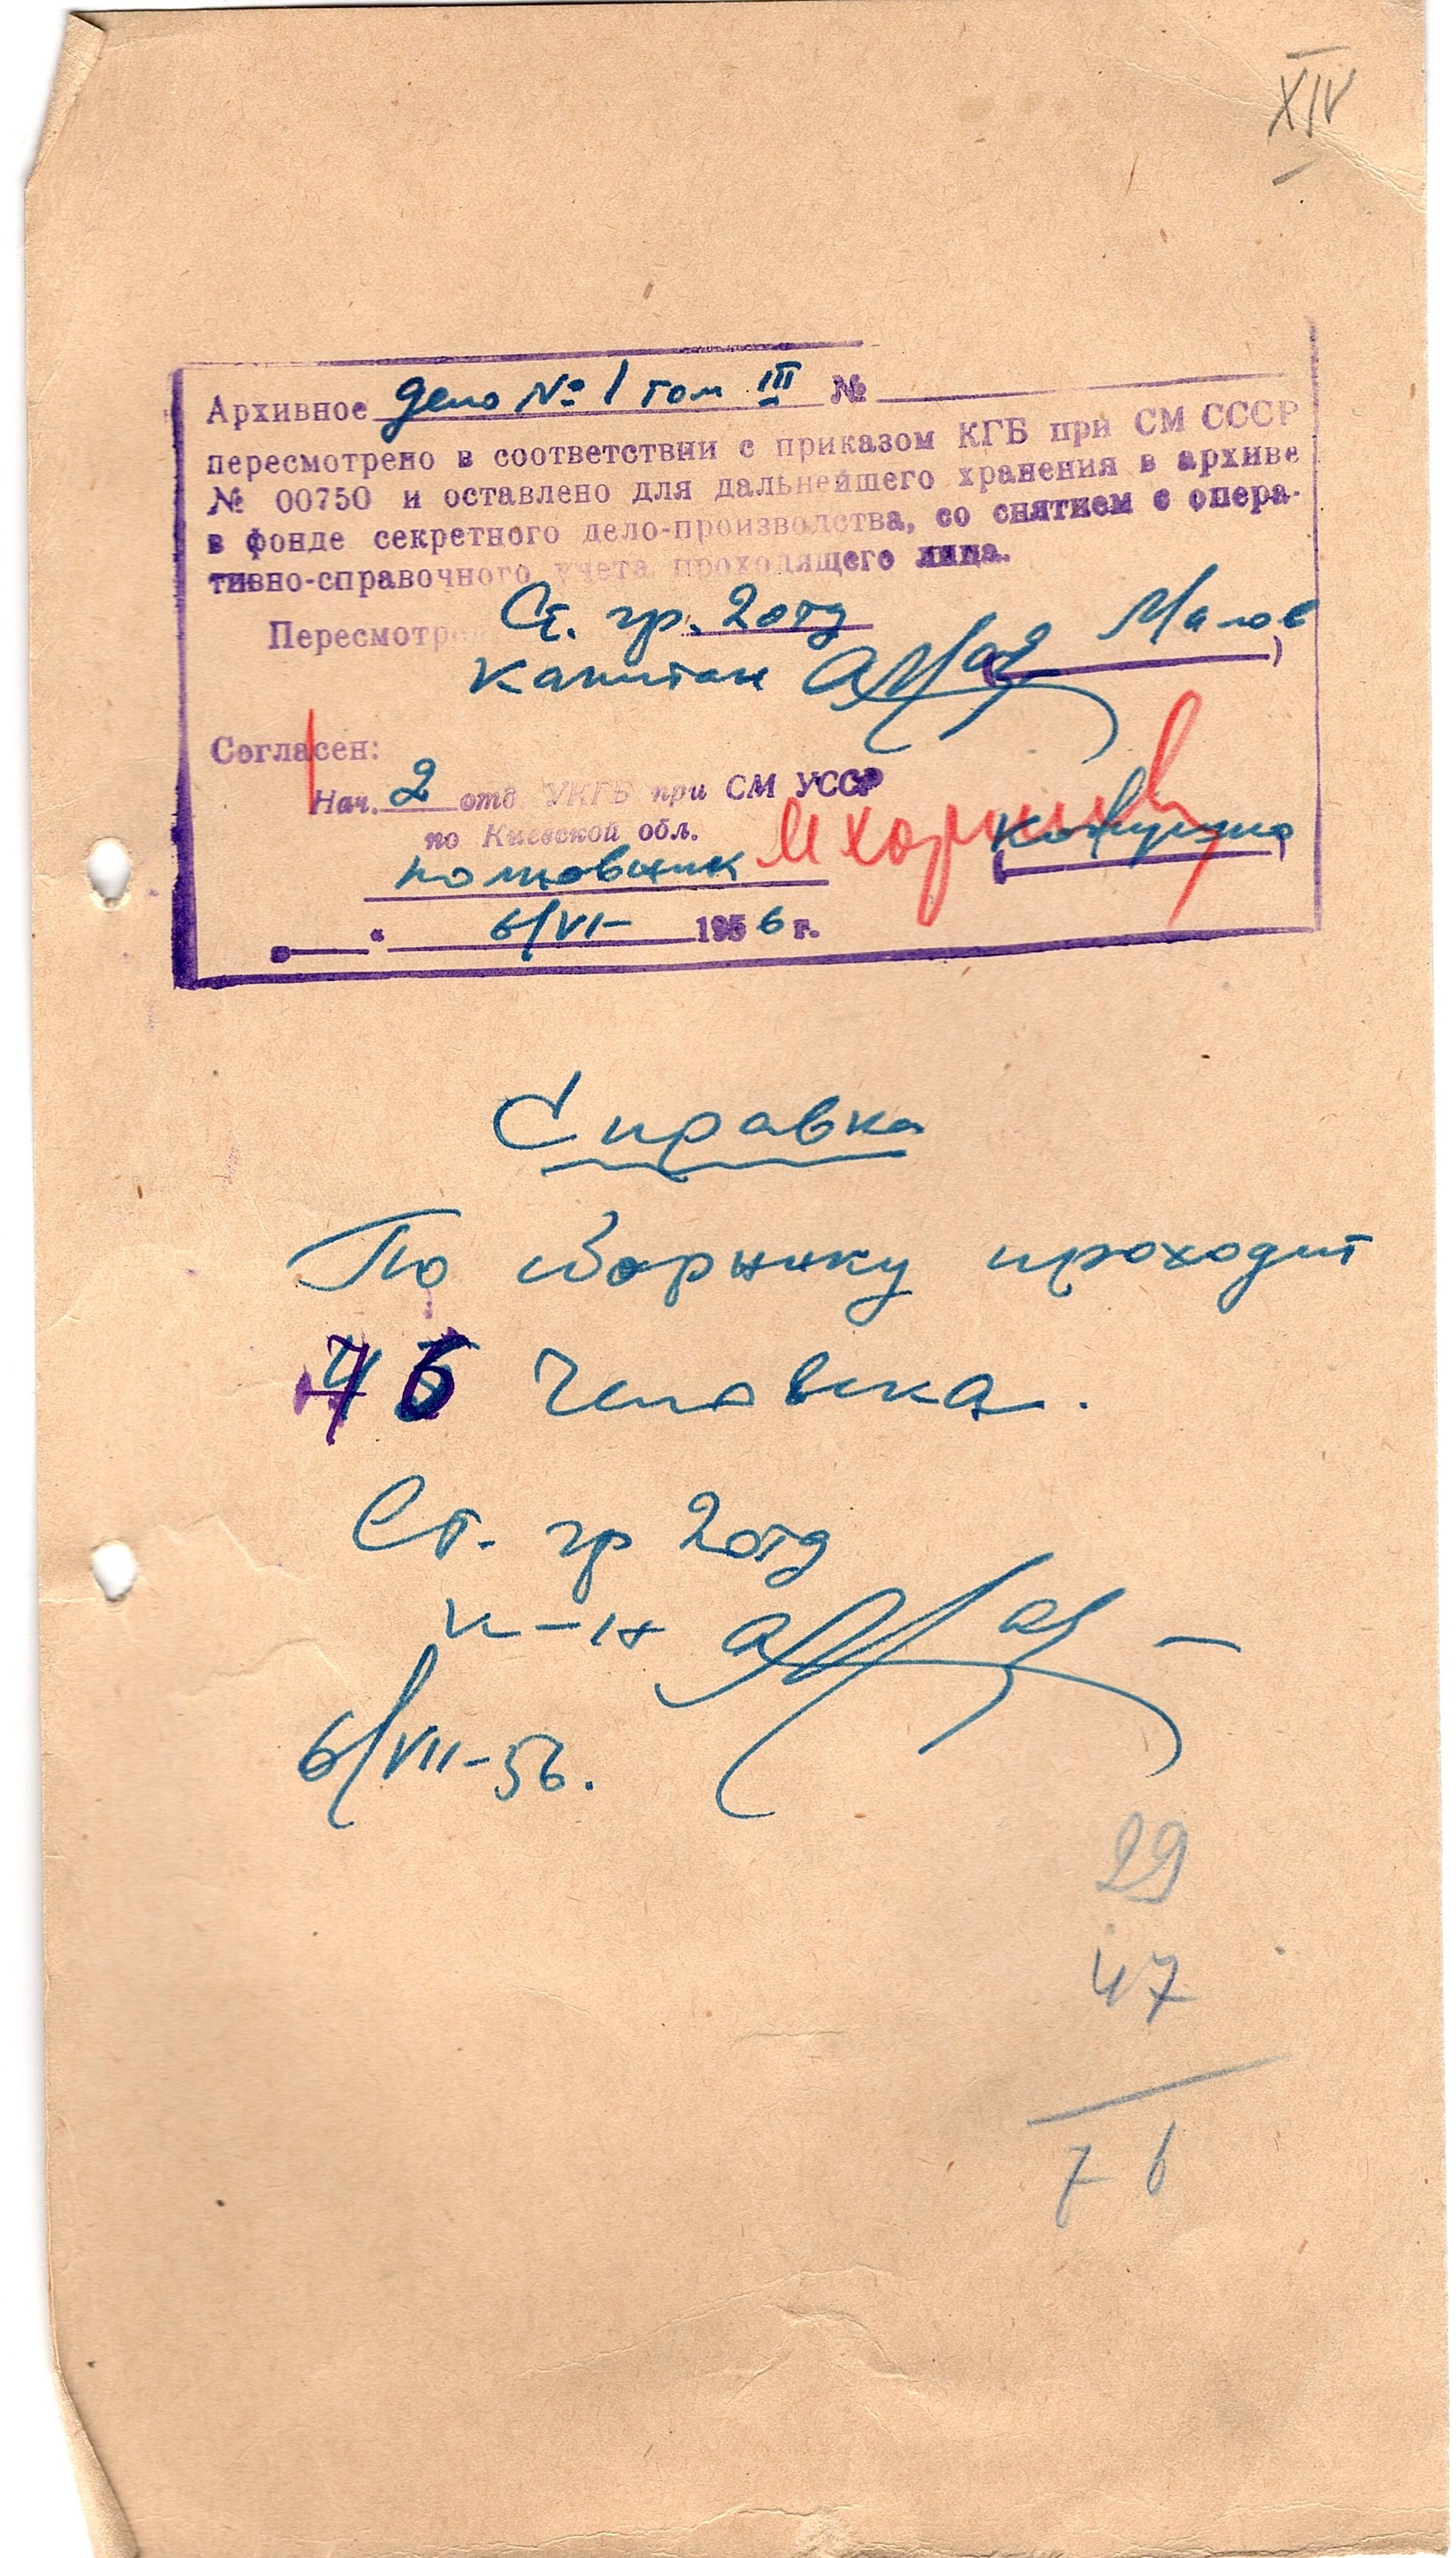 XIV
Архивное дело № 1 том III №
пересмотрено в соответствии с приказом КГБ при СМ СССР
№ 00750 и оставлено для дальнейшего хранения в архиве
в фонде секретного дело-производства, со снятием с опера-
тивно-справочного учета проходящего лица.
Пересмотрел Ст. гр. 2 отд Малов
капитан
Согласен:
Нач. 2 отд УКГБ при СМ УССР
по Киевской обл.
полковник
6/VI- 1956 г.
Справка
По сборнику проходит
76 человека.
Ст. гр 2 отд
к-н
6/VII-56.
29
47
76